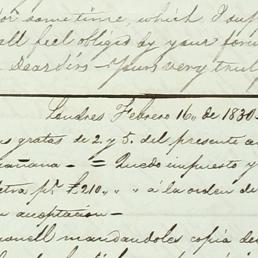 for some time, which I sup
all feel obliged by your forw
Dear Sirs – Yours very truly
Londres Febrero 16,, de 1830.
as gratas de 2. y 5. del presente a
mañana – = Quedo impuesto y
etra pr. £210,, ,, a la orden de
u aceptacion –
onell mandandoles copia de